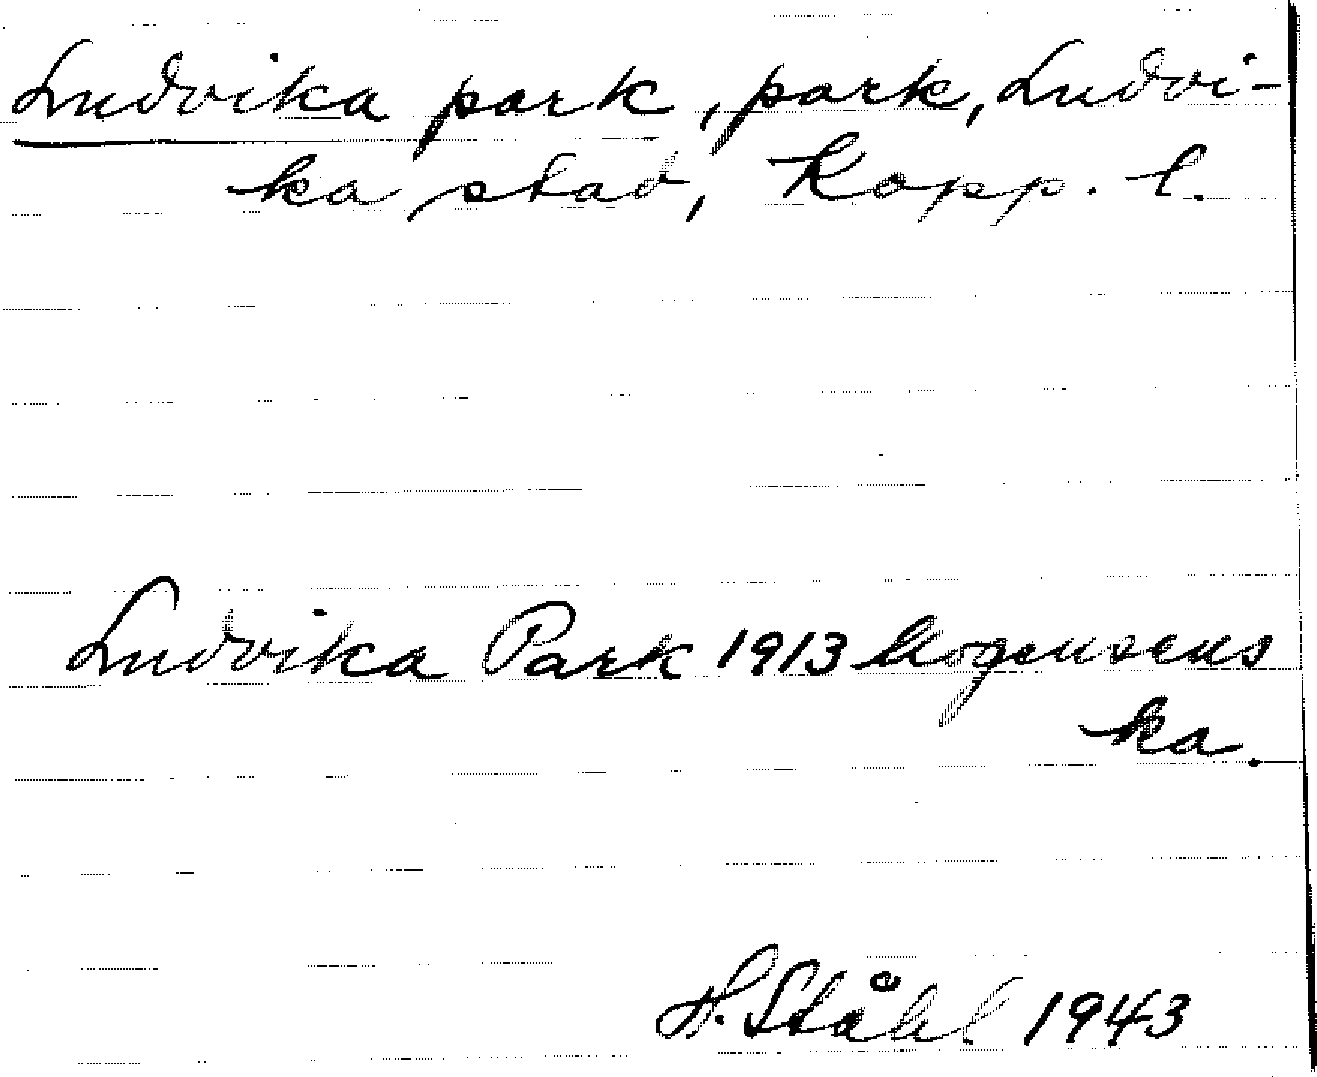 Ludvika park, park, Ludvi-
ka stad, Kopp. l.
Ludvika Park 1913 Mogensens
ka.
H. Ståhl 1943